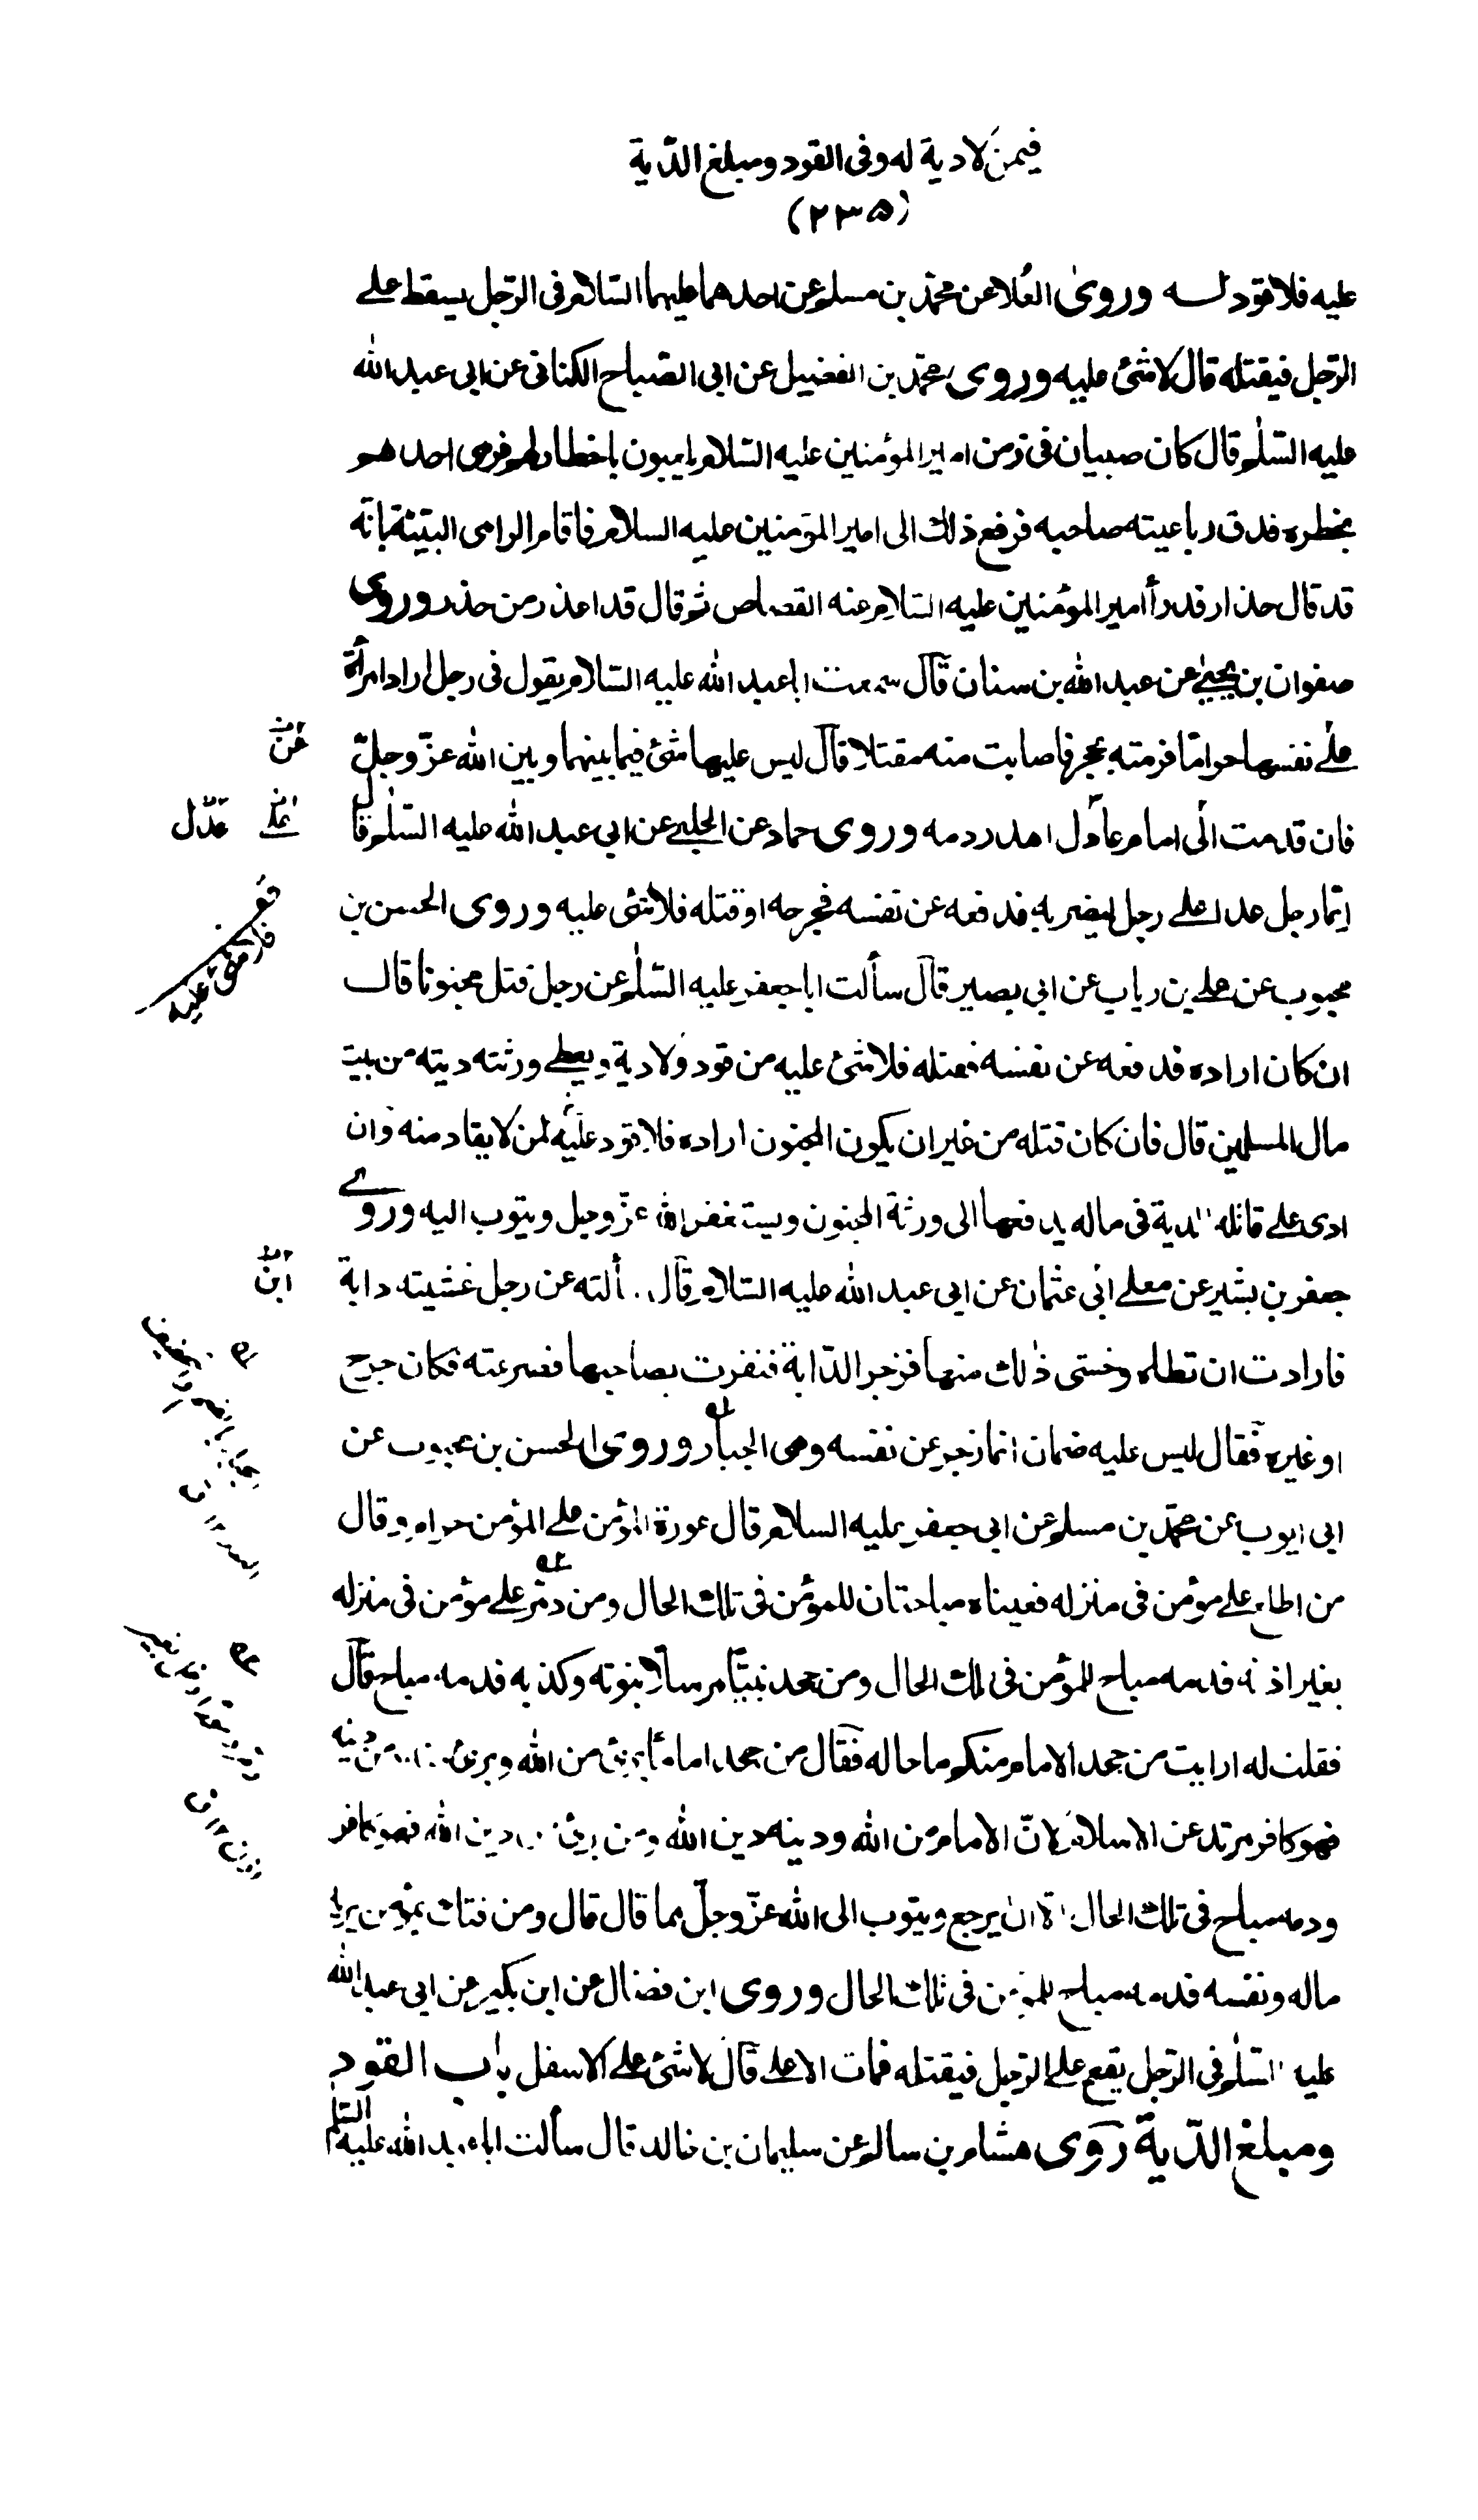 فيمن لا دية له وفى القود ومبلغ الدّية
(٢٣٥)
عليه فلا قود له وروى العلا عن محمّد بن مسلم عن احدهما عليهما السّلام فى الرّجل يسقط على
الرّجل فيقتله قال لا شئ عليه وروى محمّد بن الفضيل عن ابى الصّباح الكنانى عن ابى عبد الله
عليه السّلم قال كان صبيان فى زمن امير المؤمنين عليه السّلام يلعبون باخطار لهم فرمى احدهم
بخطره فدق رباعيته صاحبه فرفع ذلك الى امير المؤمنين عليه السلام فاقام الرامى البيّنة بانّه
قد قال حذار فدرأ امير المؤمنين عليه السّلام عنه القصاص ثم قال قد اعذر من حذر وروى
صفوان بن يحيى عن عبد الله بن سنان قال سمعت ابا عبد الله عليه السّلام يقول فى رجل اراد امرأة
على نفسها حرامًا فرمته بحجر فاصابت منه مقتلا قال ليس عليها شئ فيما بينهما وبين الله عزّ وجلّ
عن
فان قدمت الى امام عادل اهدر دمه وروى حماد عن الحلبى عن ابى عبد الله عليه السّلم قال
على عدل
ايّما رجل عدا على رجل ليضربه فدفعه عن نفسه فجرحه او قتله فلا شئ عليه وروى الحسن بن
فلا شئ عليه
محبوب عن على بن رياب عن ابى بصير قال سألت ابا جعفر عليه السّلم عن رجل قتل مجنونا قال
ان كان اراده فدفعه عن نفسه فقتله فلا شئ عليه من قود ولا دية ويعطى ورثته ديته من بيت
مال المسلمين قال فان كان قتله من غير ان يكون المجنون اراده فلا قود عليه لمن لا يقاد منه وان
ادى على قاتله الدية فى ماله يدفعها الى ورثة المجنون ويستغفر الله عزّ وجل ويتوب اليه وروى
جعفر بن بشير عن معلى ابى عثمان عن ابى عبد الله عليه السّلام قال سألته عن رجل غشيته دابة
ابن
فارادت ان تطاه وخشى ذلك منها فزجر الدّابة فنفرت بصاحبها فصرعته فكان جرح
او غيره فقال ليس عليه ضمان انما زجر عن نفسه وهى الجبار وروى الحسن بن محبوب عن
ابى ايوب عن محمّد بن مسلم عن ابى جعفر عليه السلام قال عورة المؤمن على المؤمن حرام وقال
من اطلع على مؤمن فى منزله فعيناه مباحتان للمؤمن فى تلك الحال ومن دمّر على مؤمن فى منزله
بغير اذنه فدمه مباح للمؤمن فى تلك الحال ومن جحد نبيًّا مرسلًا نبوته وكذبه فدمه مباح قال
فقلت له ارايت من جحد الامام منكم ما حاله فقال من جحد امامًا برئ من الله وبرئ منه ومن دينه
فهو كافر مرتد عن الاسلام لانّ الامام من الله ودينه دين الله ومن برئ من دين الله فهو كافر
ودمه مباح فى تلك الحال الا ان يرجع ويتوب الى الله عزّ وجلّ مما قال قال ومن فتك بمؤمن يريد
ماله ونفسه فدمه مباح للمؤمن فى تلك الحال وروى ابن فضال عن ابن بكير عن ابى عبد الله
عليه السّلم فى الرّجل يقع على الرّجل فيقتله فمات الاعلى قال لا شئ على الاسفل باب القود
ومبلغ الدّية روى هشام بن سالم عن سليمان بن خالد قال سألت ابا عبد الله عليه السّلم